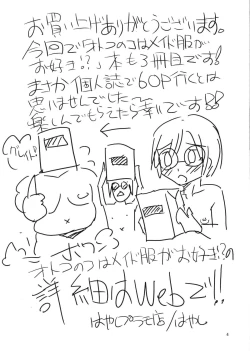 お買い上げありがとうございます。
今回でオトコのコはメイド服が
お好き!?本も3冊目です!
まさか個人誌で60P行くとは
思いませんでした…
楽しんでもらえたら幸いです
オトコのコはメイド服がお好き!?の
詳細はWebで!!
はやしプラモ店/はやし